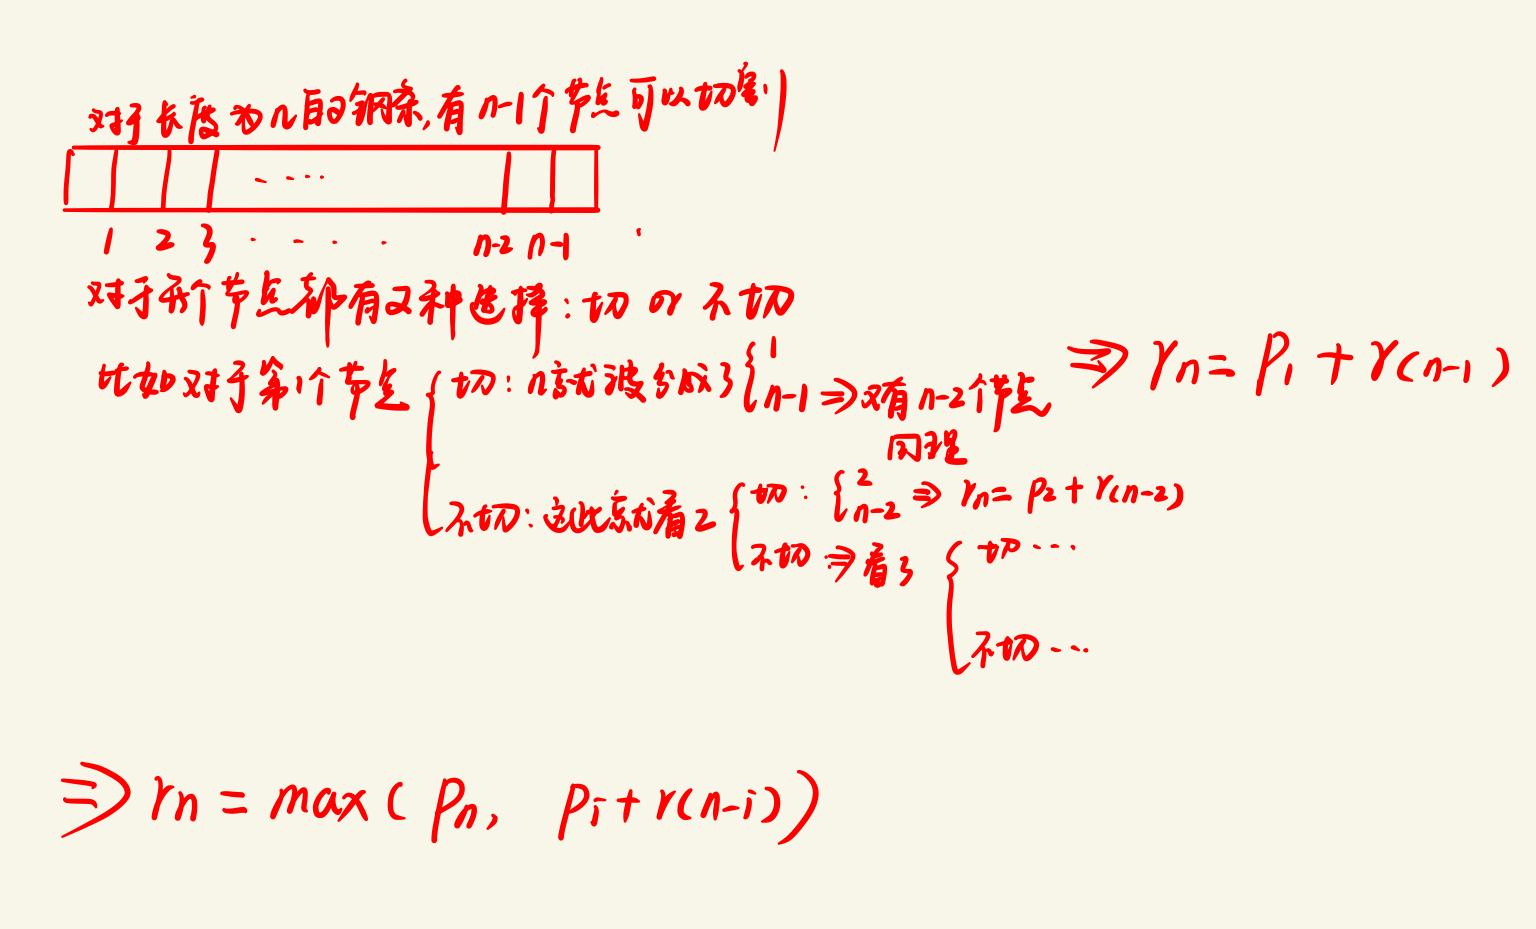 对于长度为n的钢条,有n-1个节点可以切割
....
1 2 3 .... n-2 n-1
对于每个节点都有2种选择:切 or 不切
比如对于第1个节点
切:n就被分成了
1
n-1 ⇒ 又有n-2个节点
同理
⇒ rn = P1 + r(n-1)
不切:这此就看2
切:
2
n-2 ⇒ rn = P2 + r(n-2)
不切 ⇒ 看3
切...
不切...
⇒ rn = max( Pn, Pi + r(n-i))